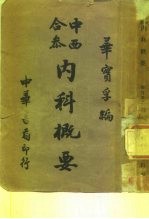 華實孚編
中西合參
內科概要
中華書局印行